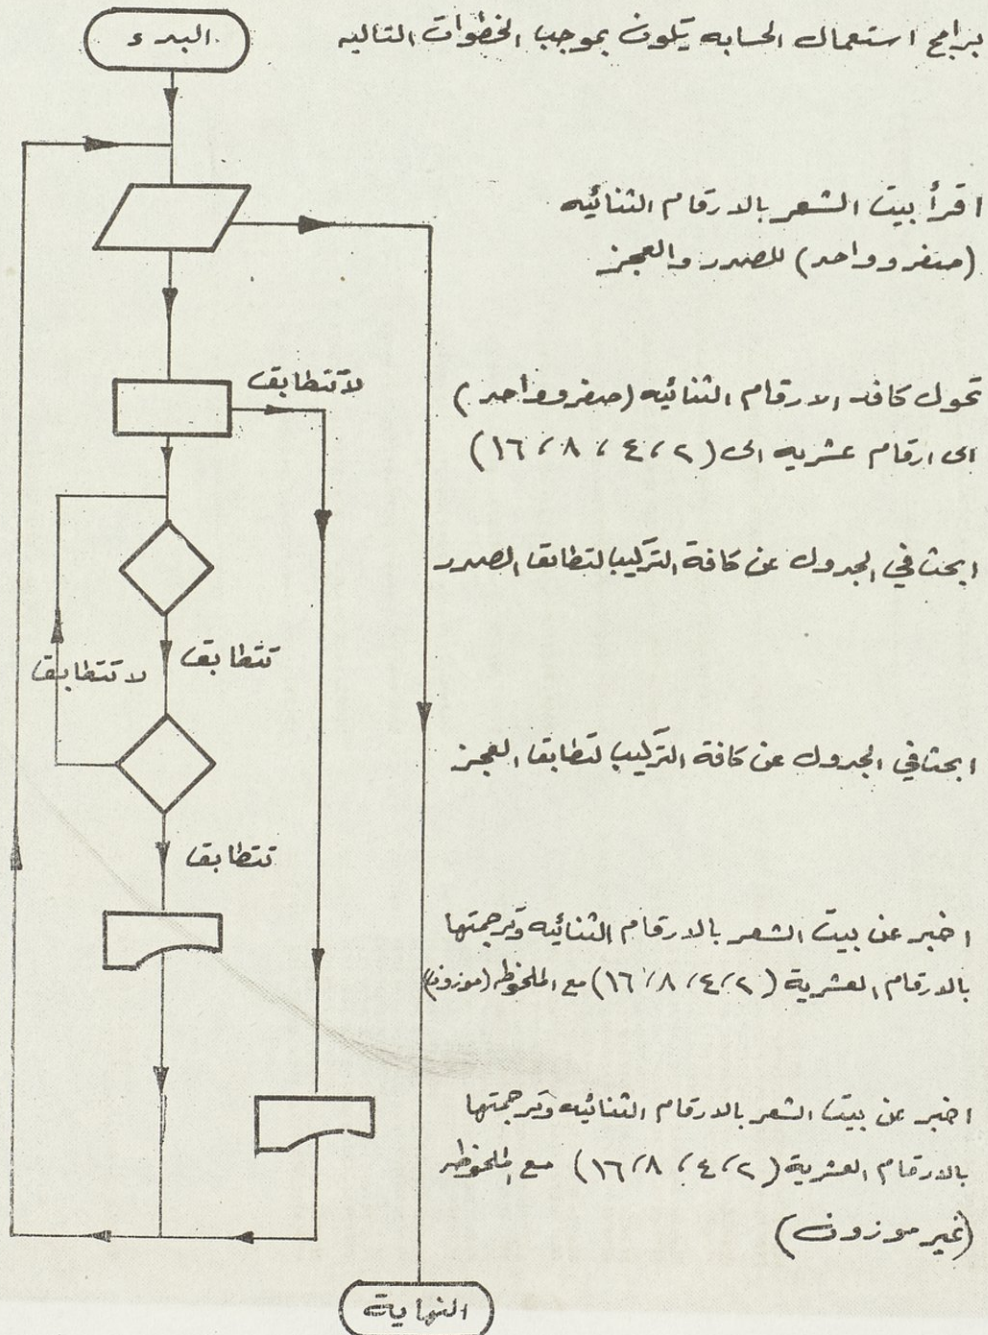 البدء
برامج استعمال الحسابه يتلون بموجب الخطوات التاليه
اقرأ بيت الشعر بالارقام الثنائيه
(صفر وواحد) للصدر والعجز
لا تتطابق
تحول كافه الارقام الثنائيه (صفر وواحد)
الى ارقام عشريه الى (٢، ٤، ٨، ١٦)
ابحث في الجدول عن كافة التركيب لتطابق الصدر
تتطابق
لا تتطابق
ابحث في الجدول عن كافة التركيب لتطابق العجز
تتطابق
اخبر عن بيت الشعر بالارقام الثنائيه وترجمتها
بالارقام العشرية (٢، ٤، ٨، ١٦) مع الملحوظه (موزون)
اخبر عن بيت الشعر بالارقام الثنائيه وترجمتها
بالارقام العشرية (٢، ٤، ٨، ١٦) مع الملحوظه
(غير موزون)
النهاية